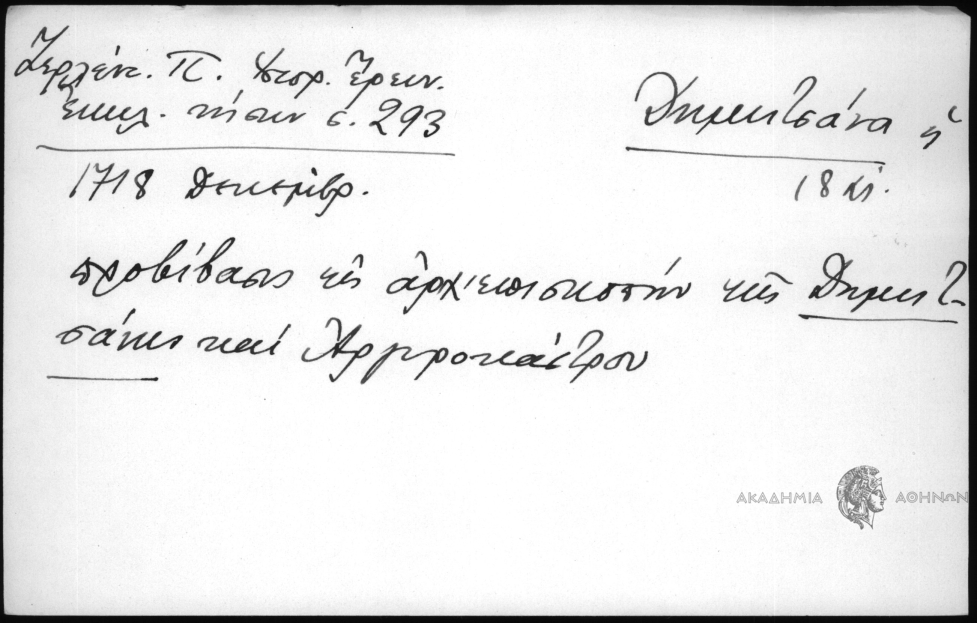 Ζερλέντ. Π. Ἱστορ. Ἔρευν.
Ἐκκλ. νήσων σ. 293
Δημητσάνα ἡ
1718 Δεκεμβρ.
18 αἰ.
προβίβασις εἰς ἀρχιεπισκοπὴν τῆς Δημητ-
σάνης καὶ Ἀργυροκάστρου
ΑΚΑΔΗΜΙΑ ΑΘΗΝΩΝ